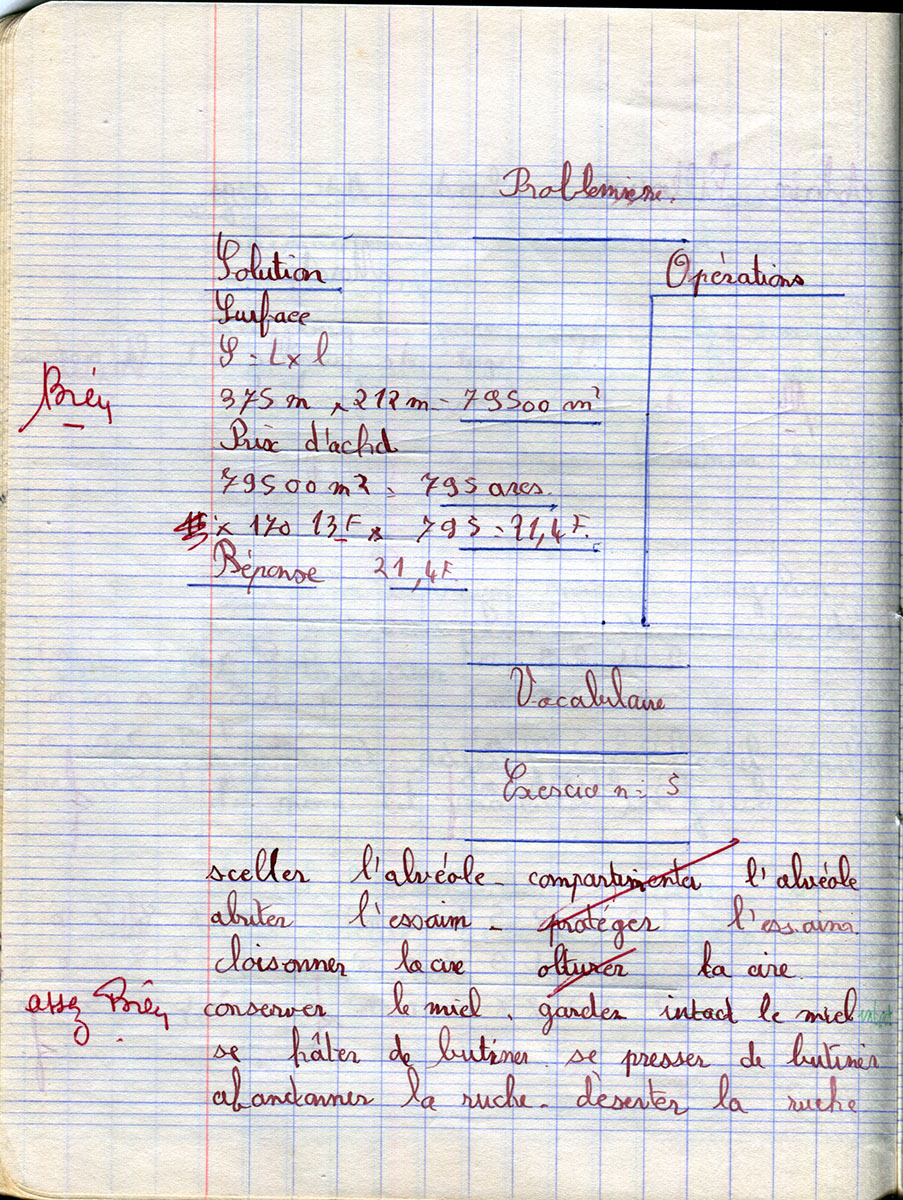 Problemiene.
Solution
Opérations
Surface
S = L x l
Bien
375 m x 212 m = 79500 m²
Prix d'achd
79500 m² = 795 ares.
x 170 13 F x 795 = 21,4 F.
Réponse 21,4 F.
Vocabulaire
Exercice n = 5
sceller l'alvéole - compartimenter l'alvéole
abriter l'essaim - protéger l'essaim
cloisonner la cire olturer la cire.
assez Bien
conserver le miel, garder intact le miel
se hâter de butiner se presser de butiner
abandonner la ruche - déserter la ruche